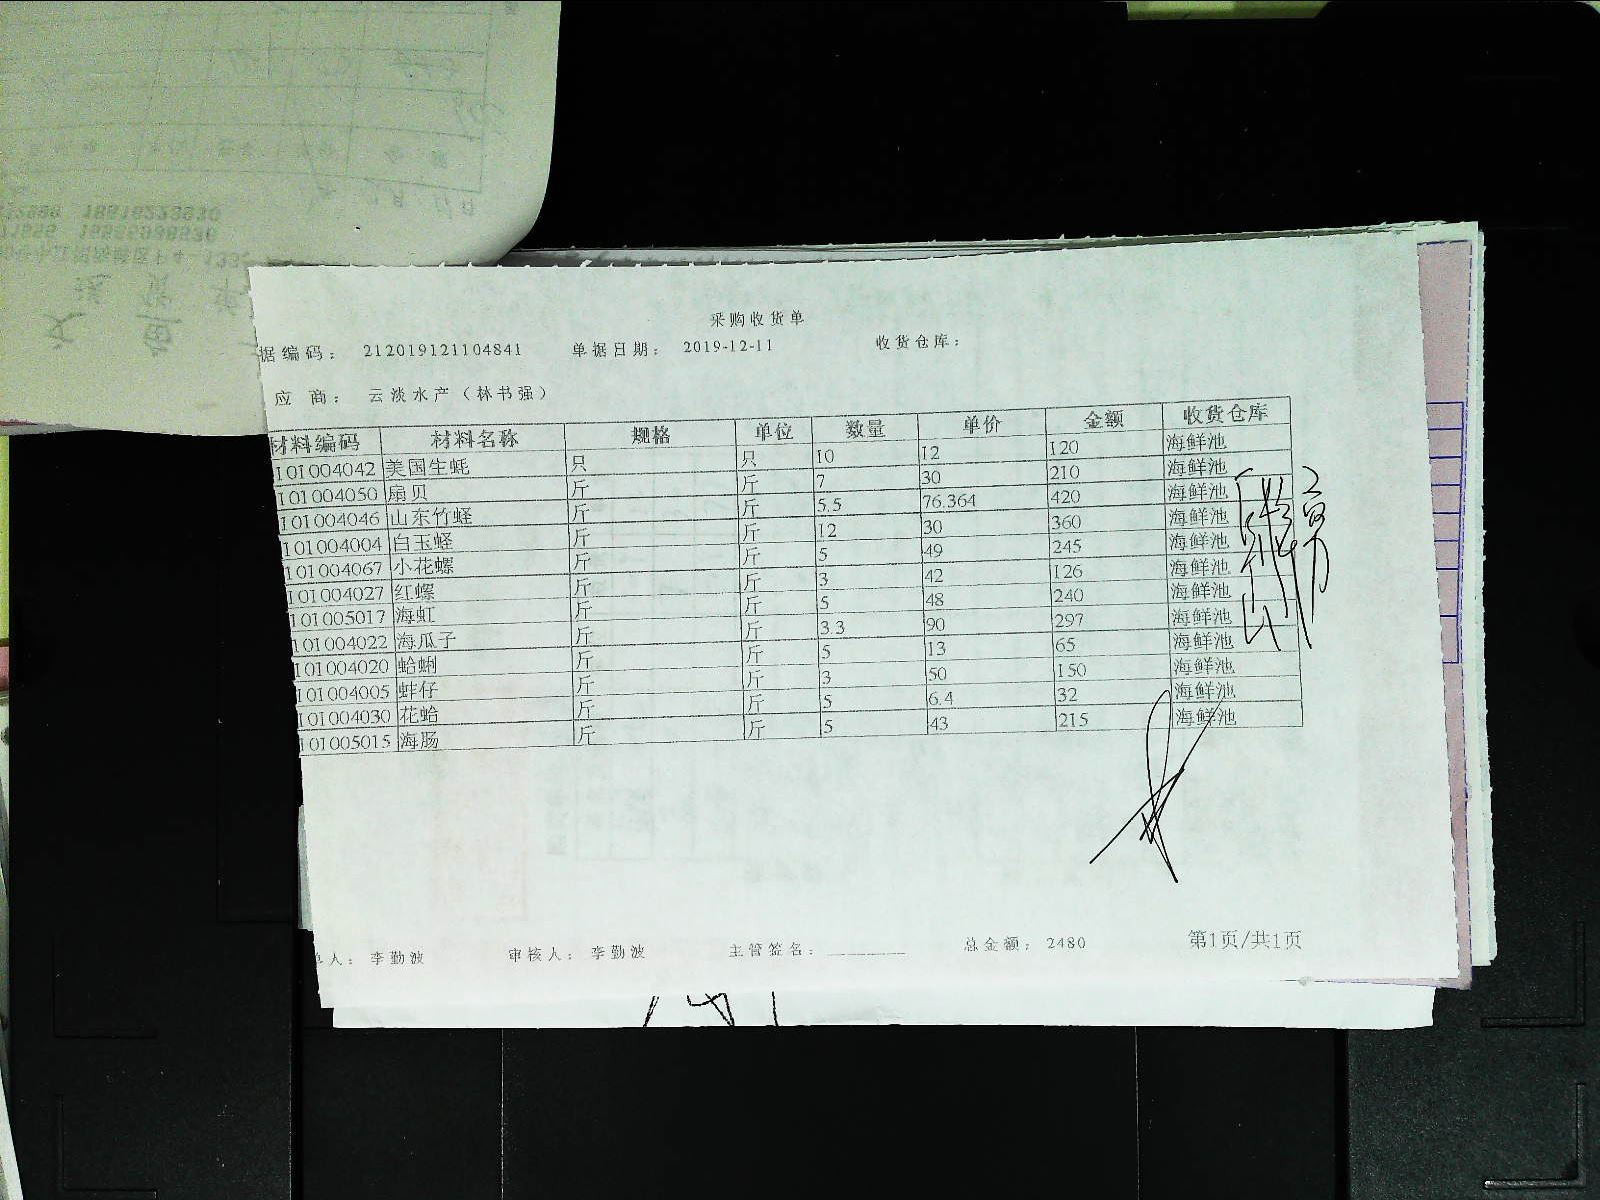 采购收货单
据编码： 212019121104841 单据日期： 2019-12-11 收货仓库：
应 商： 云淡水产（林书强）
材料编码 材料名称 规格 单位 数量 单价 金额 收货仓库
101004042 美国生蚝 只 只 10 12 120 海鲜池
101004050 扇贝 斤 斤 7 30 210 海鲜池
101004046 山东竹蛏 斤 斤 5.5 76.364 420 海鲜池
101004004 白玉蛏 斤 斤 12 30 360 海鲜池
101004067 小花螺 斤 斤 5 49 245 海鲜池
101004027 红螺 斤 斤 3 42 126 海鲜池
101005017 海虹 斤 斤 5 48 240 海鲜池
101004022 海瓜子 斤 斤 3.3 90 297 海鲜池
101004020 蛤蜊 斤 斤 5 13 65 海鲜池
101004005 蚌仔 斤 斤 3 50 150 海鲜池
101004030 花蛤 斤 斤 5 6.4 32 海鲜池
101005015 海肠 斤 斤 5 43 215 海鲜池
单人： 李勤波 审核人： 李勤波 主管签名： 总金额： 2480 第1页/共1页